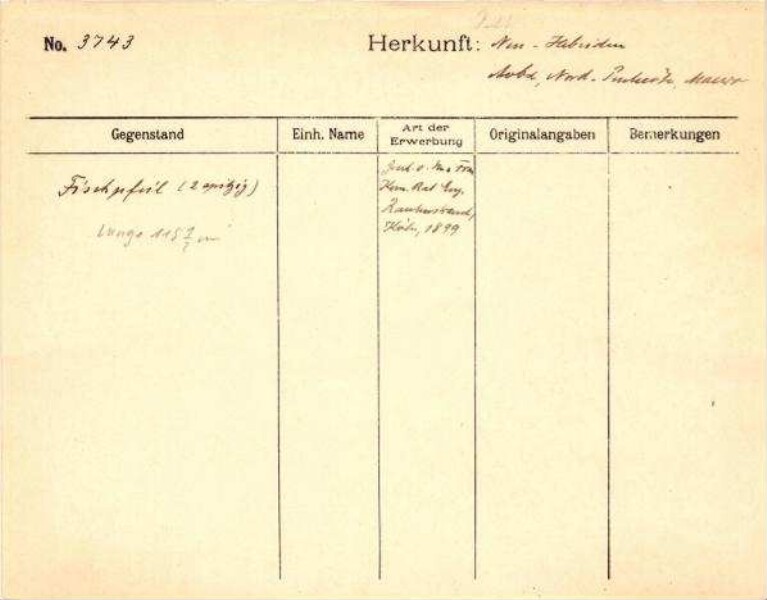 No. 3743
Herkunft: Neu-Hebriden
Aoba, Nord-
Gegenstand
Einh. Name
Art der
Erwerbung
Originalangaben
Bemerkungen
Fischpfeil (2 spitzig)
Länge 115
Gesch. v.
Rautenstrauch,
Köln, 1899